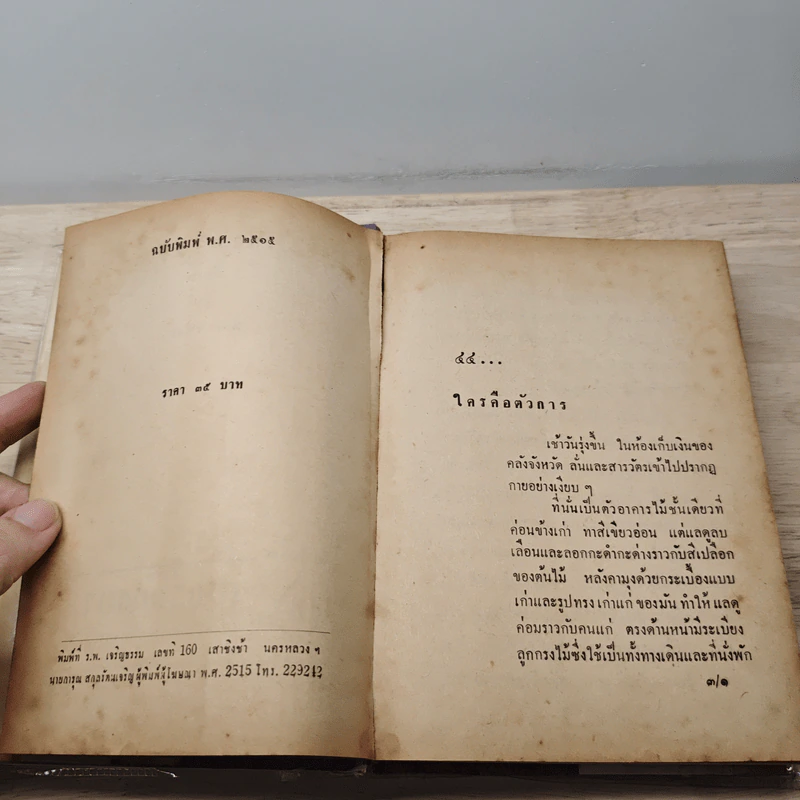 ฉบับพิมพ์ พ.ศ. ๒๕๑๕
ราคา ๓๕ บาท
พิมพ์ที่ ร.พ. เจริญธรรม เลขที่ 160 เสาชิงช้า นครหลวง ฯ
นายการุณ สกุลรัตนเจริญ ผู้พิมพ์ผู้โฆษณา พ.ศ. 2515 โทร. 229242
๔๔...
ใครคือตัวการ
เช้าวันรุ่งขึ้น ในห้องเก็บเงินของ
คลังจังหวัด ลั่นและสารวัตรเข้าไปปรากฏ
กายอย่างเงียบ ๆ
ที่นั่นเป็นตัวอาคารไม้ชั้นเดียวที่
ค่อนข้างเก่า ทาสีเขียวอ่อน แต่แลดูลบ
เลือนและลอกกะดำกะด่างราวกับสีเปลือก
ของต้นไม้ หลังคามุงด้วยกระเบื้องแบบ
เก่าและรูปทรง เก่าแก่ ของมัน ทำให้ แลดู
ค่อมราวกับคนแก่ ตรงด้านหน้ามีระเบียง
ลูกกรงไม้ซึ่งใช้เป็นทั้งทางเดินและที่นั่งพัก
๓/๑